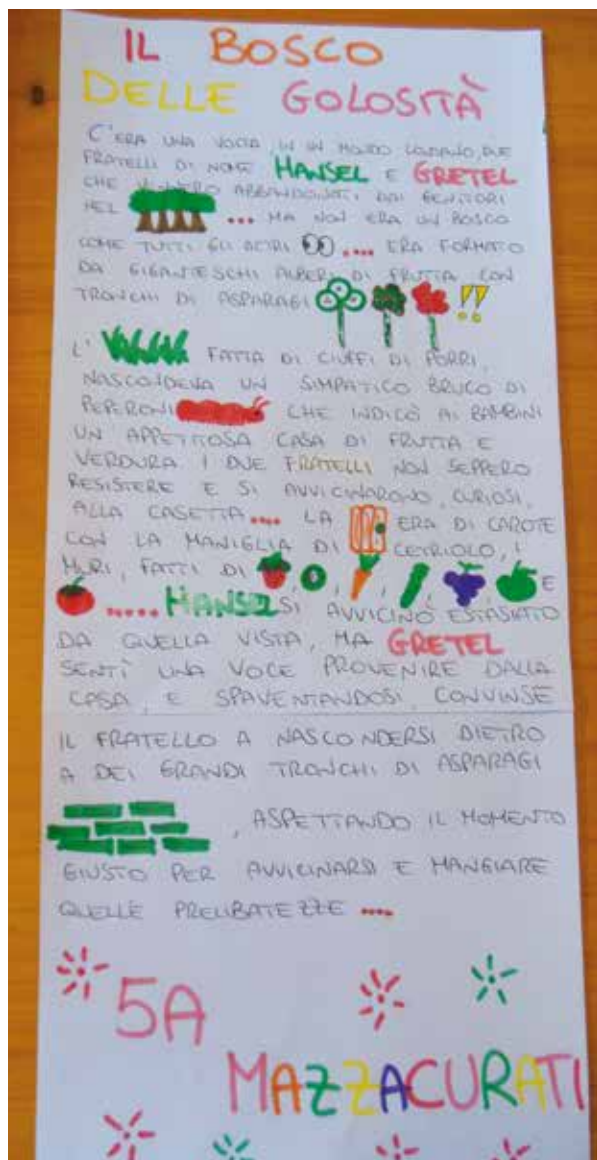 IL BOSCO
DELLE GOLOSITÀ
C'ERA UNA VOLTA, IN UN MONDO LONTANO, DUE
FRATELLI DI NOME HANSEL E GRETEL
CHE VENNERO ABBANDONATI DAI GENITORI
NEL .... MA NON ERA UN BOSCO
COME TUTTI GLI ALTRI .... ERA FORMATO
DA GIGANTESCHI ALBERI DI FRUTTA CON
TRONCHI DI ASPARAGI !!
L' FATTA DI CIUFFI DI PORRI,
NASCONDEVA UN SIMPATICO BRUCO DI
PEPERONI CHE INDICÒ AI BAMBINI
UN'APPETITOSA CASA DI FRUTTA E
VERDURA. I DUE FRATELLI NON SEPPERO
RESISTERE E SI AVVICINARONO, CURIOSI,
ALLA CASETTA.... LA ERA DI CAROTE
CON LA MANIGLIA DI CETRIOLO, I
MURI, FATTI DI , , , , , E
..... HANSEL SI AVVICINÒ ESTASIATO
DA QUELLA VISTA, MA GRETEL
SENTÌ UNA VOCE PROVENIRE DALLA
CASA, E SPAVENTANDOSI, CONVINSE
IL FRATELLO A NASCONDERSI DIETRO
A DEI GRANDI TRONCHI DI ASPARAGI
, ASPETTANDO IL MOMENTO
GIUSTO PER AVVICINARSI E MANGIARE
QUELLE PRELIBATEZZE ....
5A
MAZZACURATI